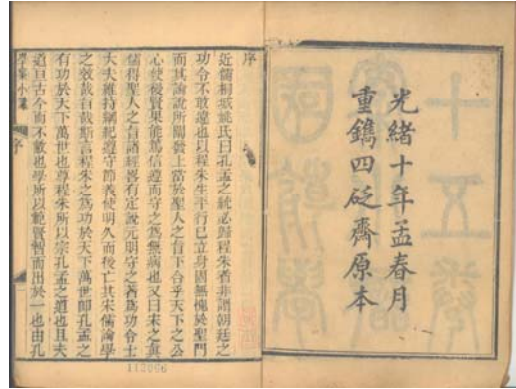 光緒十年孟春月
重鐫四砭齋原本
序
近儒桐城姚氏曰孔孟之統必歸程朱者非謂朝廷之
功令不敢違也以程朱生平行已立身固無愧於聖門
而其論說所闡發上當於聖人之旨下合乎天下之公
心使後賢果能篤信遵而守之爲無病也又曰宋之眞
儒得聖人之旨諸經畧有定說元明守之著爲功令士
大夫維持綱紀遵守節義使明久而後亡其宋儒論學
之效哉旨哉斯言程朱之爲功於天下萬世卽孔孟之
有功於天下萬世也尊程朱所以宗孔孟之道也且夫
道亘古今而不敝也學所以範賢智而出於一也由孔
學案小識
序
112096